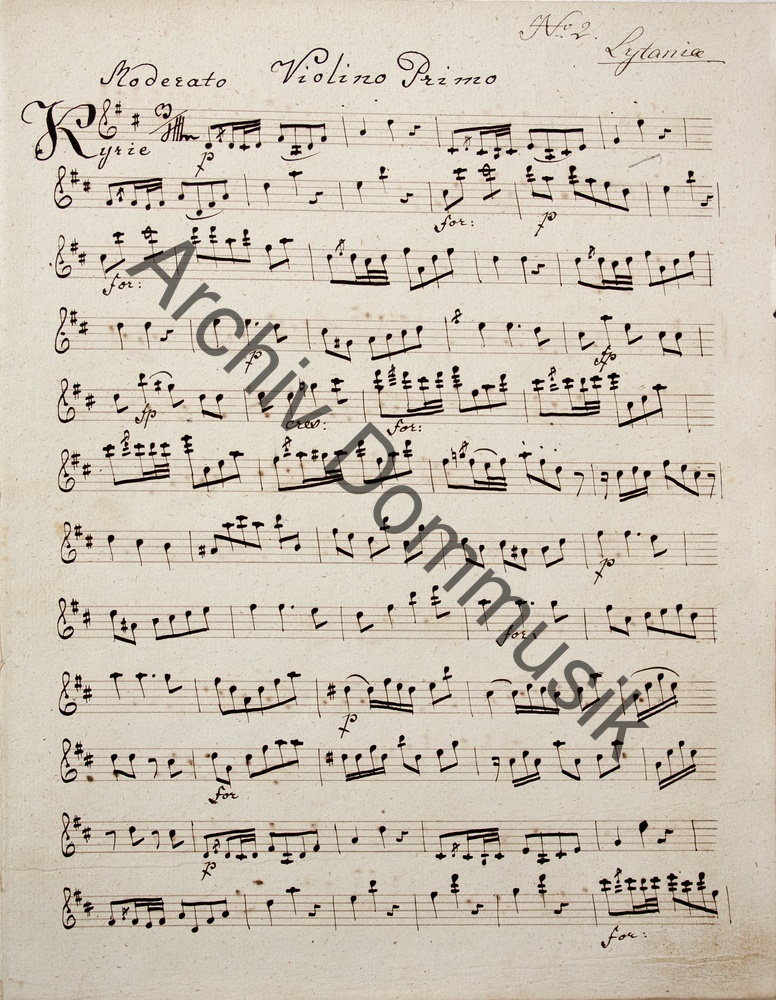 No. 2.
Lytaniæ
Moderato Violino Primo
Kyrie
p
for: p
for:
p fp
fp cres: for:
p
for:
p
for
p
for:
Archiv Dommusik